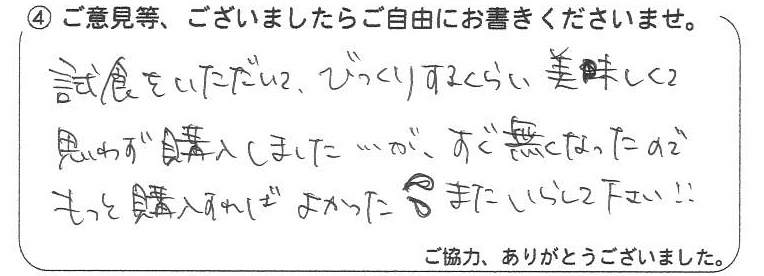 ④ ご意見等、ございましたらご自由にお書きくださいませ。
試食をいただいて、びっくりするくらい美味しくて
思わず購入しました…が、すぐ無くなったので
もっと購入すればよかった またいらして下さい!!
ご協力、ありがとうございました。